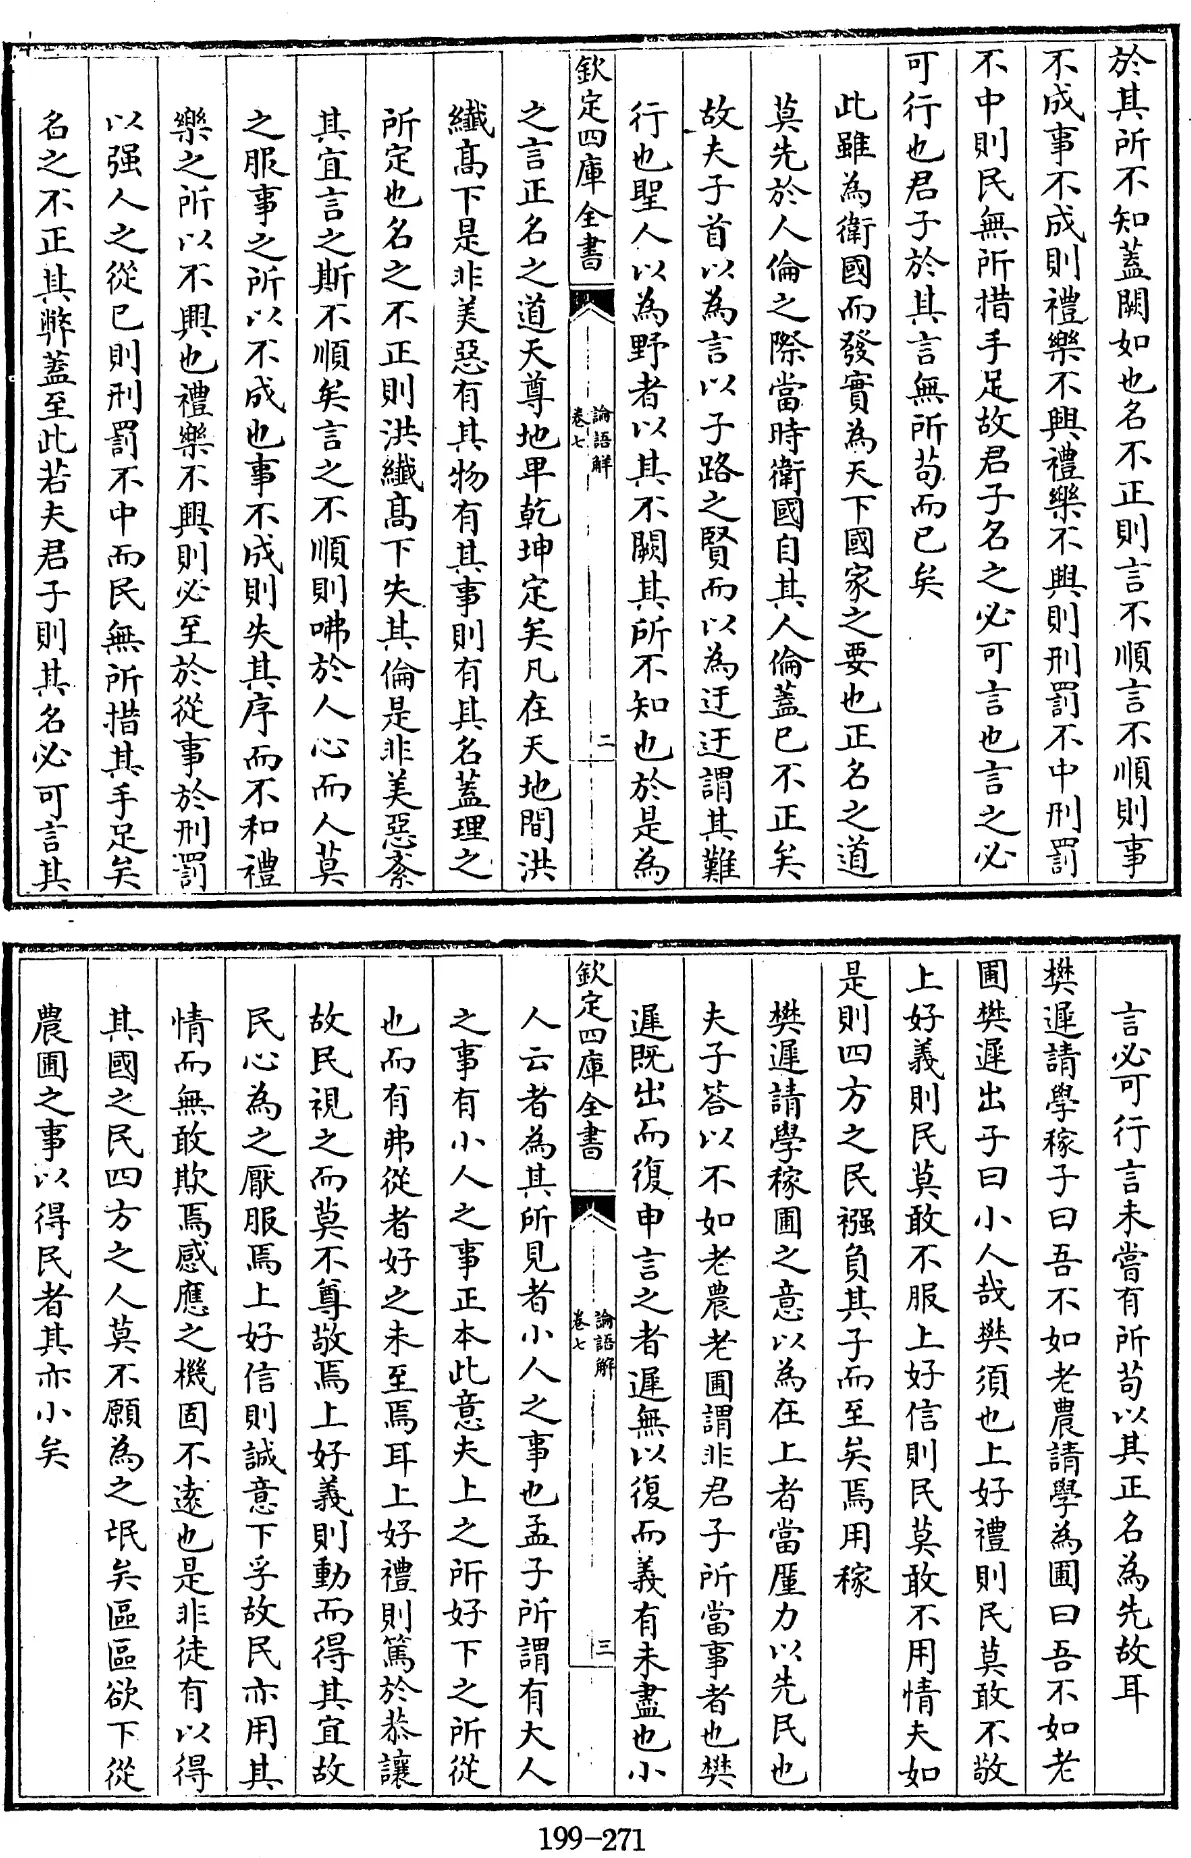 於其所不知蓋闕如也名不正則言不順言不順則事
不成事不成則禮樂不興禮樂不興則刑罰不中刑罰
不中則民無所措手足故君子名之必可言也言之必
可行也君子於其言無所苟而已矣
此雖為衛國而發實為天下國家之要也正名之道
莫先於人倫之際當時衛國自其人倫蓋已不正矣
故夫子首以為言以子路之賢而以為迂迂謂其難
行也聖人以為野者以其不闕其所不知也於是為
欽定四庫全書
論語解
卷七
二
之言正名之道天尊地卑乾坤定矣凡在天地間洪
纖高下是非美惡有其物有其事則有其名蓋理之
所定也名之不正則洪纖高下失其倫是非美惡紊
其宜言之斯不順矣言之不順則咈於人心而人莫
之服事之所以不成也事不成則失其序而不和禮
樂之所以不興也禮樂不興則必至於從事於刑罰
以强人之從已則刑罰不中而民無所措其手足矣
名之不正其弊蓋至此若夫君子則其名必可言其
言必可行言未嘗有所苟以其正名為先故耳
樊遲請學稼子曰吾不如老農請學為圃曰吾不如老
圃樊遲出子曰小人哉樊須也上好禮則民莫敢不敬
上好義則民莫敢不服上好信則民莫敢不用情夫如
是則四方之民襁負其子而至矣焉用稼
樊遲請學稼圃之意以為在上者當厪力以先民也
夫子答以不如老農老圃謂非君子所當事者也樊
遲既出而復申言之者遲無以復而義有未盡也小
欽定四庫全書
論語解
卷七
三
人云者為其所見者小人之事也孟子所謂有大人
之事有小人之事正本此意夫上之所好下之所從
也而有弗從者好之未至焉耳上好禮則篤於恭讓
故民視之而莫不尊敬焉上好義則動而得其宜故
民心為之厭服焉上好信則誠意下孚故民亦用其
情而無敢欺焉感應之機固不遠也是非徒有以得
其國之民四方之人莫不願為之氓矣區區欲下從
農圃之事以得民者其亦小矣
199-271